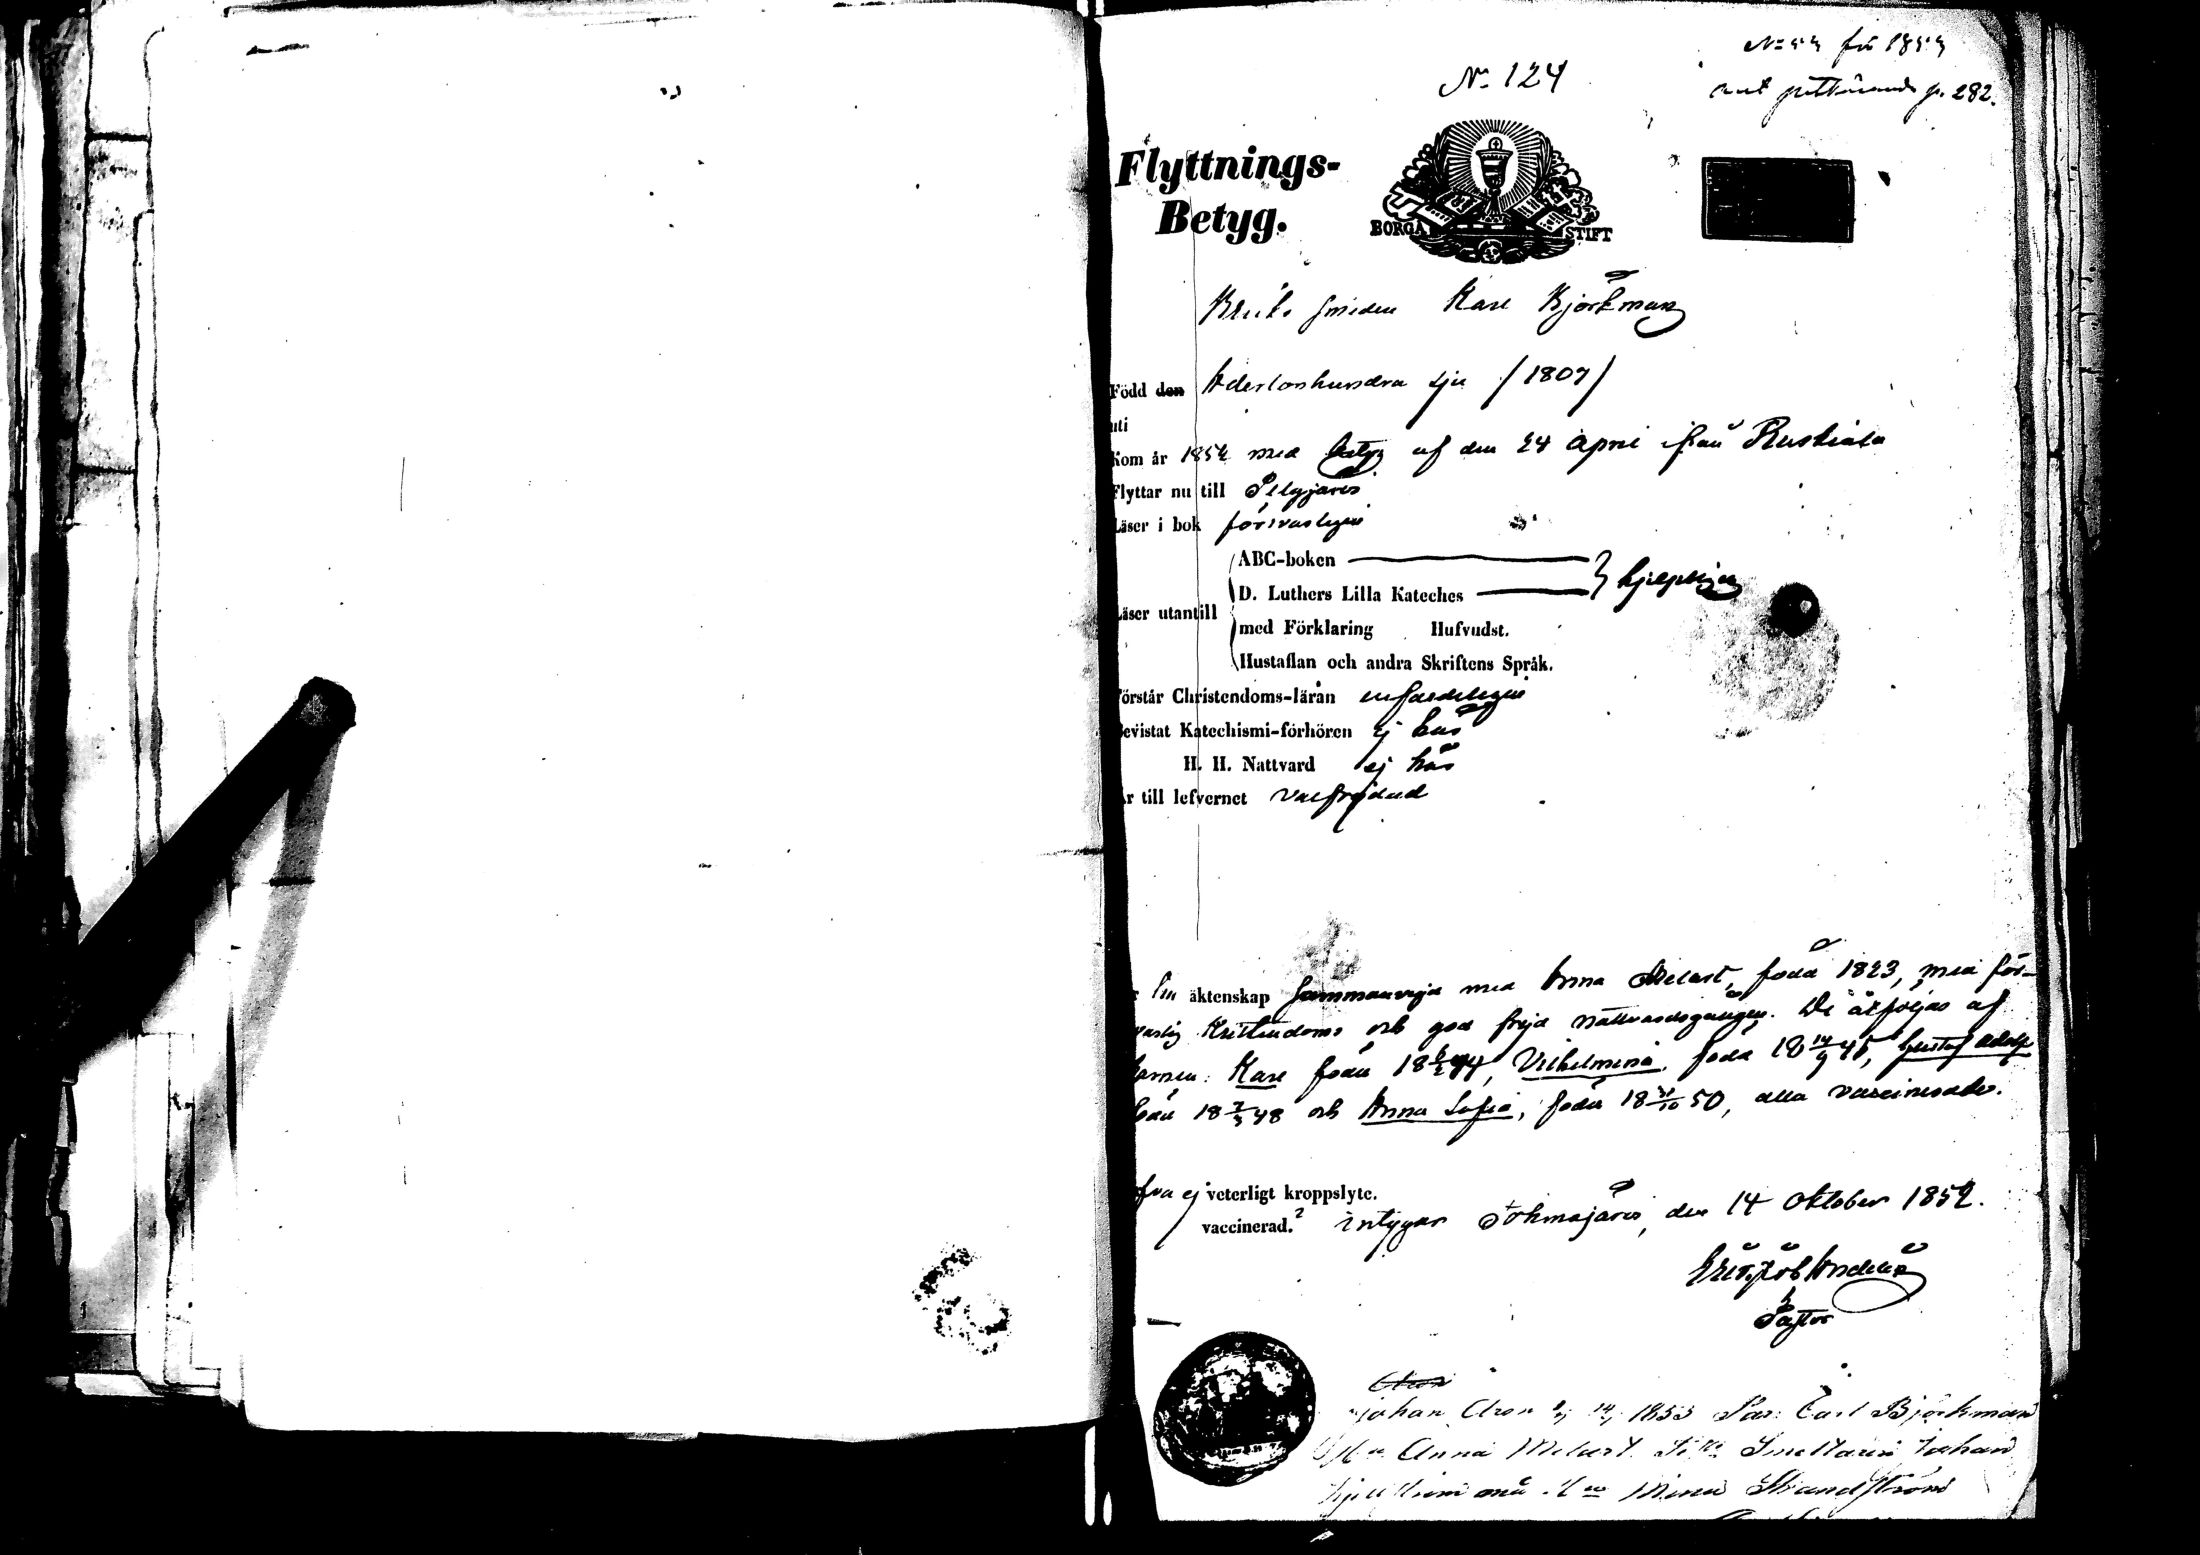 N:o 124
p. 282.
Flyttnings-
Betyg.
BORGÅ STIFT
Bruks smeden Karl Björkman
Född den Adertonhundra sju /1807/
uti
Kom år 1852 med betyg af den 24 April ifrån Ruskiala
Flyttar nu till Pelgjärvi
Läser i bok försvarligen
ABC-boken
D. Luthers Lilla Kateches hjelpligen
Läser utantill
med Förklaring Hufvudst.
Hustaflan och andra Skriftens Språk.
Förstår Christendoms-läran enfaldeligen
Bevistat Katechismi-förhören ej här
H. H. Nattvard ej här
Är till lefvernet välfrejdad
äktenskap sammanvigd med Anna Melart, född 1823, med för-
svarlig Kristendoms och god frejd nattvardsgången. De åtföljas af
barnen: Karl född 18 44, Vilhelmina, född 18 14/9 45, Gustaf Adolf
född 18 7/3 48 och Anna Sofia, född 18 31/10 50, alla vaccinerade.
ej veterligt kroppslyte.
vaccinerad. intygar Tohmajärvi, den 14 Oktober 1852.
Pastor
Johan Aron 1853 Carl Björkman
Anna Melart Johan
Mina Strandström